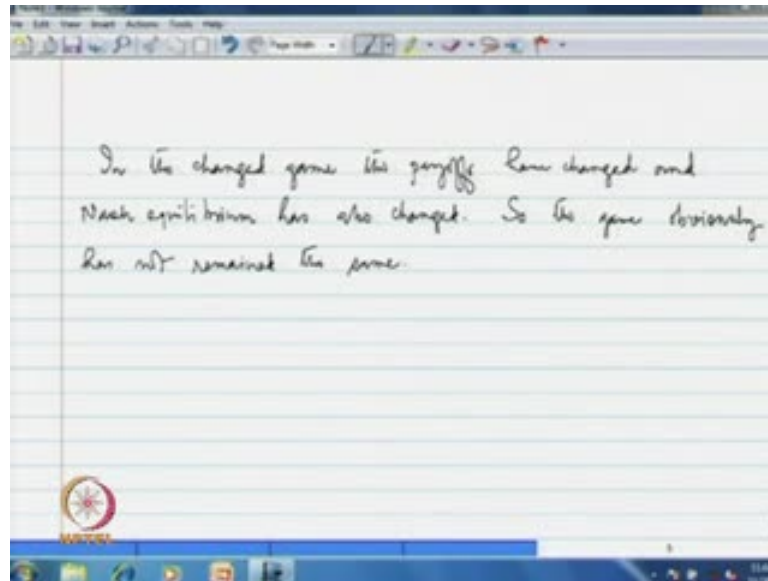 Edit View Insert Actions Tools Help
Page Width
In the changed game the payoffs have changed and
Nash equilibrium has also changed. So the game obviously
has not remained the same.
NPTEL